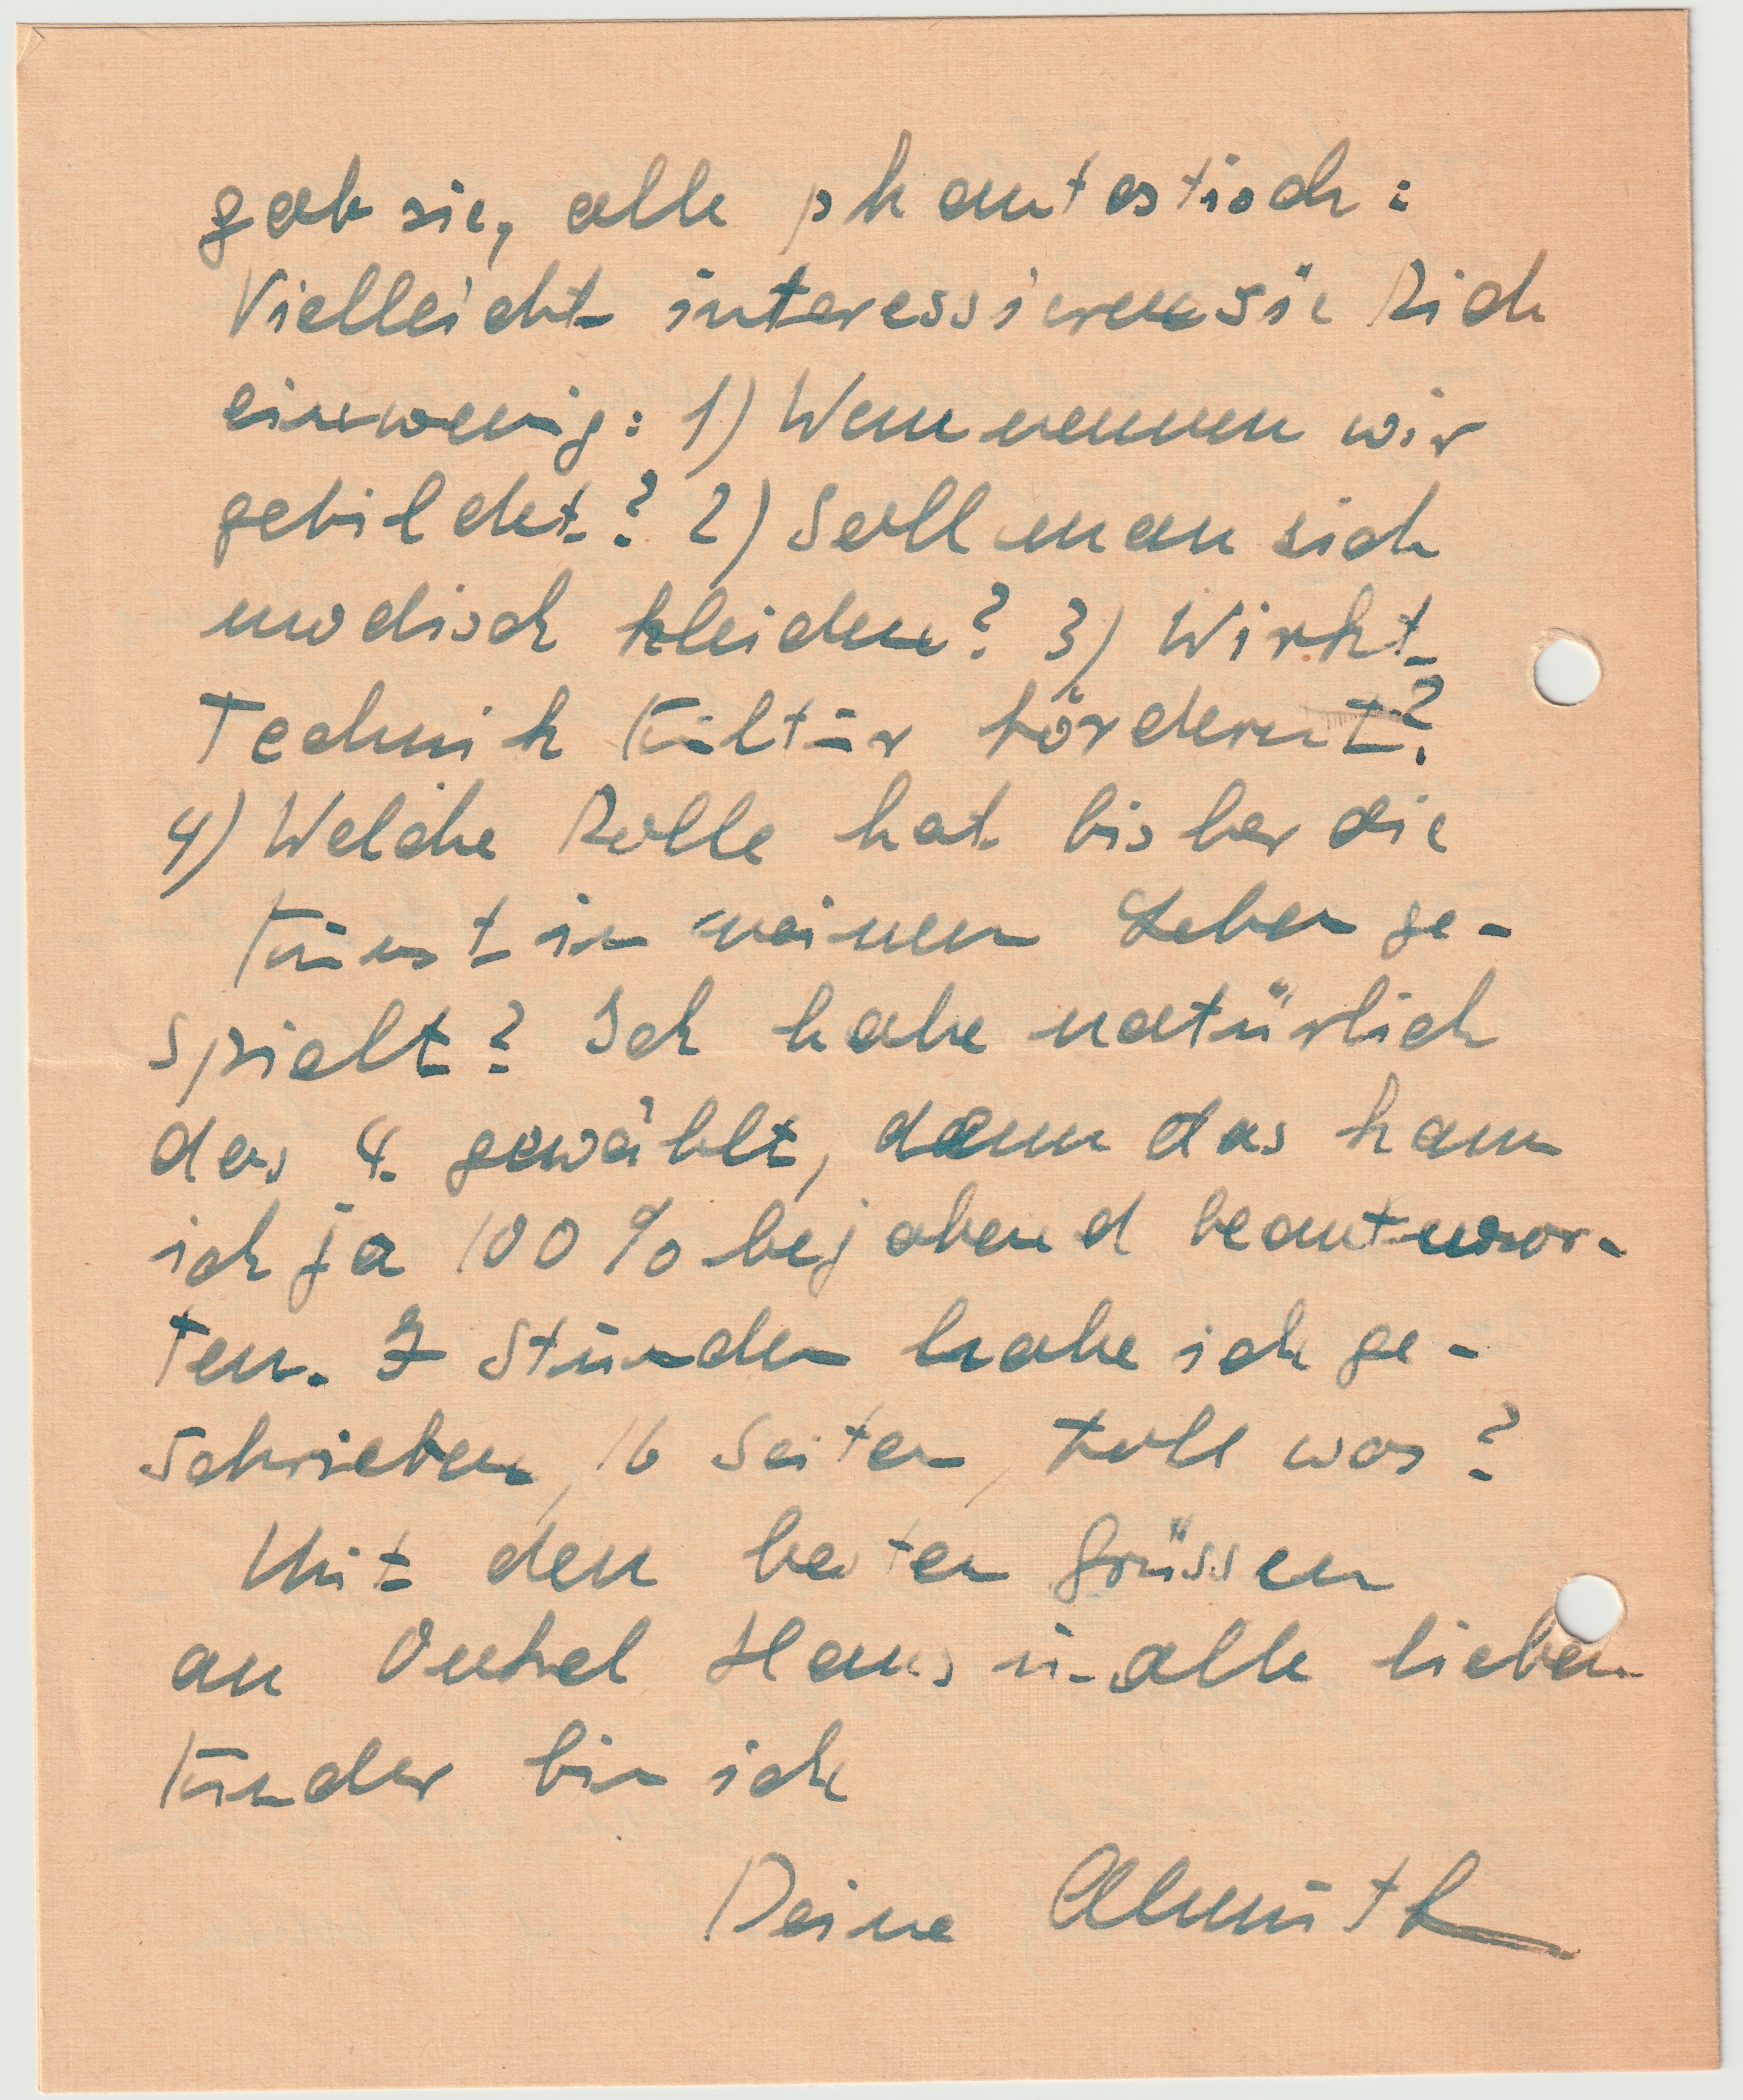 gab sie, alle phantastisch:
Vielleicht interessieren sie Dich
ein wenig: 1) Wen nennen wir
gebildet? 2) Soll man sich
modisch kleiden? 3) Wirkt
Technik Kultur fördernt?
4) Welche Rolle hat bisher die
Kunst in meinen Leben ge-
spielt? Ich habe natürlich
das 4. gewählt, denn das kann
ich ja 100% bejahend beantwor-
ten. 7 Stunden habe ich ge-
schrieben, 16 Seiten, toll was?
Mit den besten Grüssen
an Onkel Hans u. alle lieben
Kinder bin ich
Deine Almuth